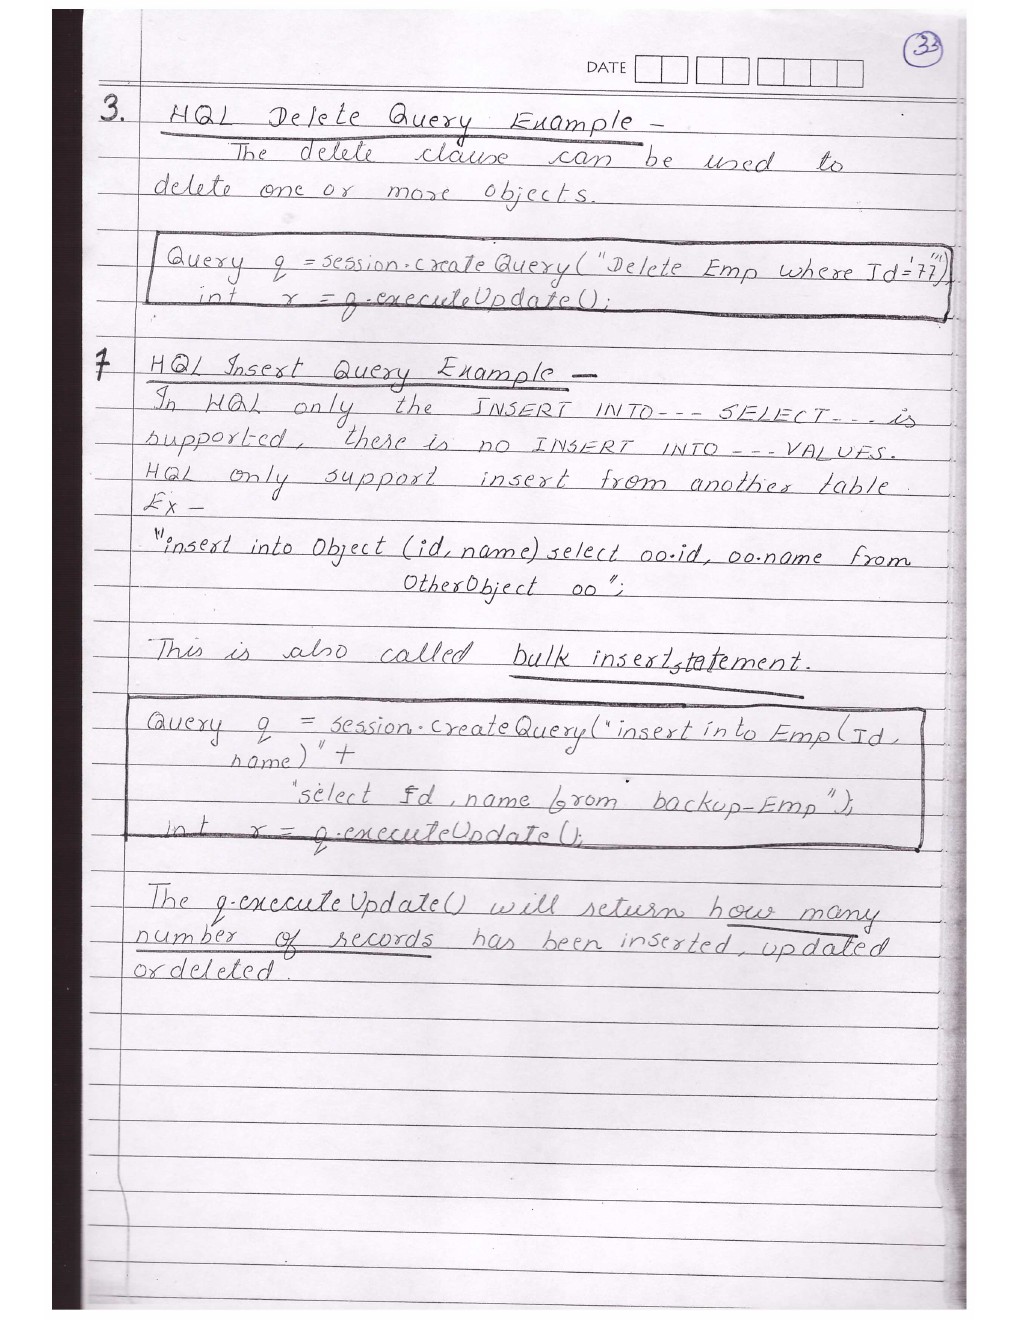 33
DATE
3. HQL Delete Query Example -
The delete clause can be used to
delete one or more objects.
Query q = session.createQuery("Delete Emp where Id='77'")
int r = q.executeUpdate();
7 HQL Insert Query Example -
In HQL only the INSERT INTO--- SELECT--- is
supported, there is no INSERT INTO --- VALUES.
HQL only support insert from another table
Ex -
"insert into Object (id, name) select oo.id, oo.name from
OtherObject oo";
This is also called bulk insert statement.
Query q = session.createQuery("insert into Emp(Id,
name)" +
"select Id, name from backup-Emp");
int r = q.executeUpdate();
The q.executeUpdate() will return how many
number of records has been inserted, updated
or deleted.